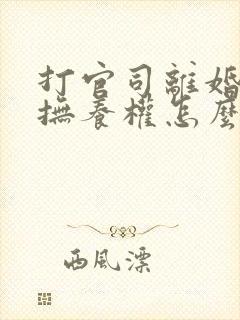 打官司離婚
撫養權怎麼
西風漂